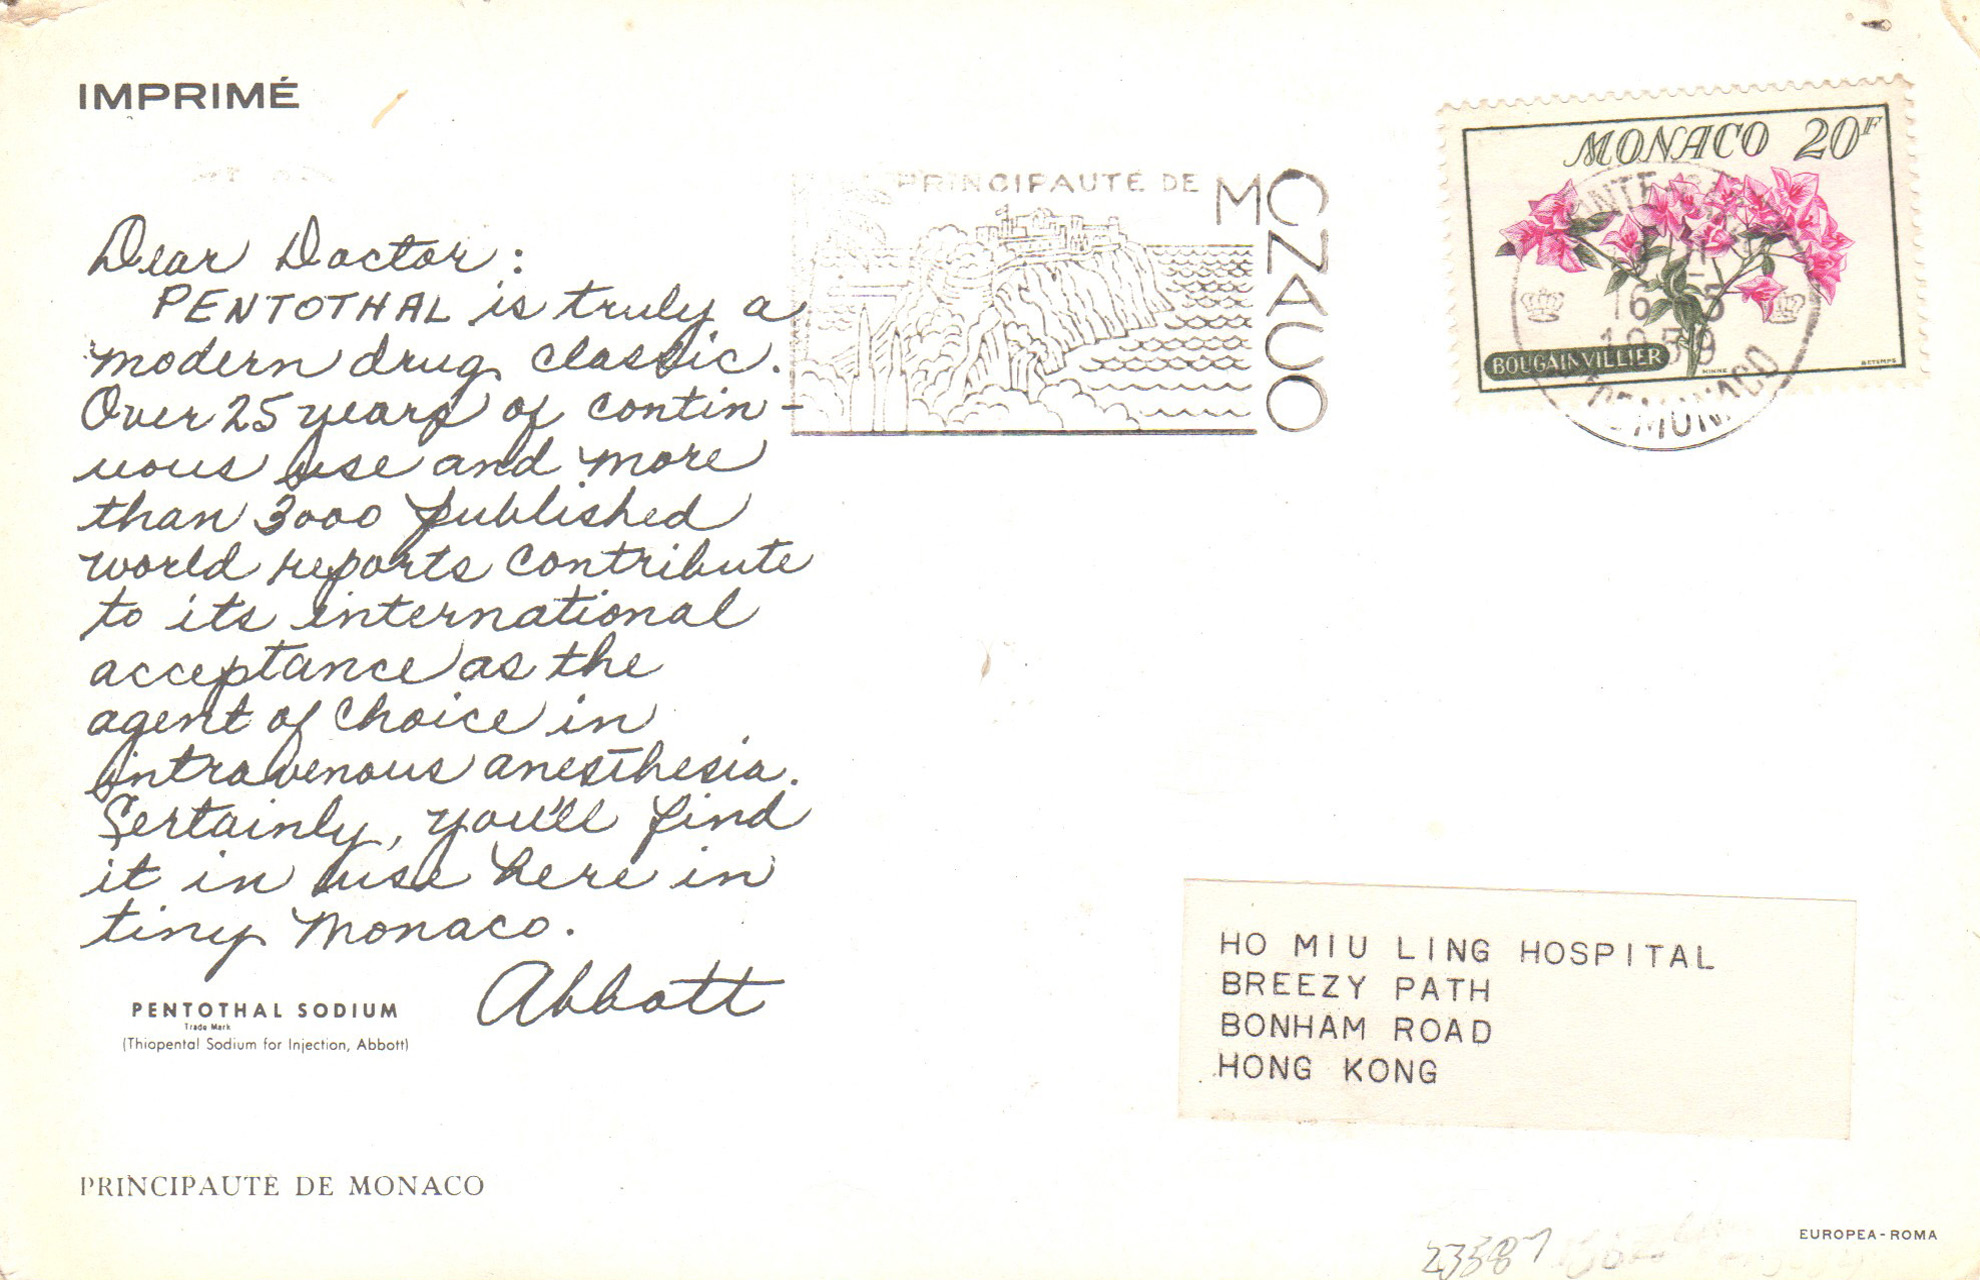 IMPRIMÉ
Dear Doctor:
PENTOTHAL is truly a
modern drug classic.
Over 25 years of contin-
uous use and more
than 3000 published
world reports contribute
to its international
acceptance as the
agent of choice in
intravenous anesthesia.
Certainly, you'll find
it in use here in
tiny Monaco.
Abbott
PENTOTHAL SODIUM
Trade Mark
(Thiopental Sodium for Injection, Abbott)
PRINCIPAUTÉ DE MONACO
PRINCIPAUTÉ DE MONACO
MONACO 20F
BOUGAINVILLIER
16 - 5
1959
DE MONACO
HO MIU LING HOSPITAL
BREEZY PATH
BONHAM ROAD
HONG KONG
23587
EUROPEA-ROMA